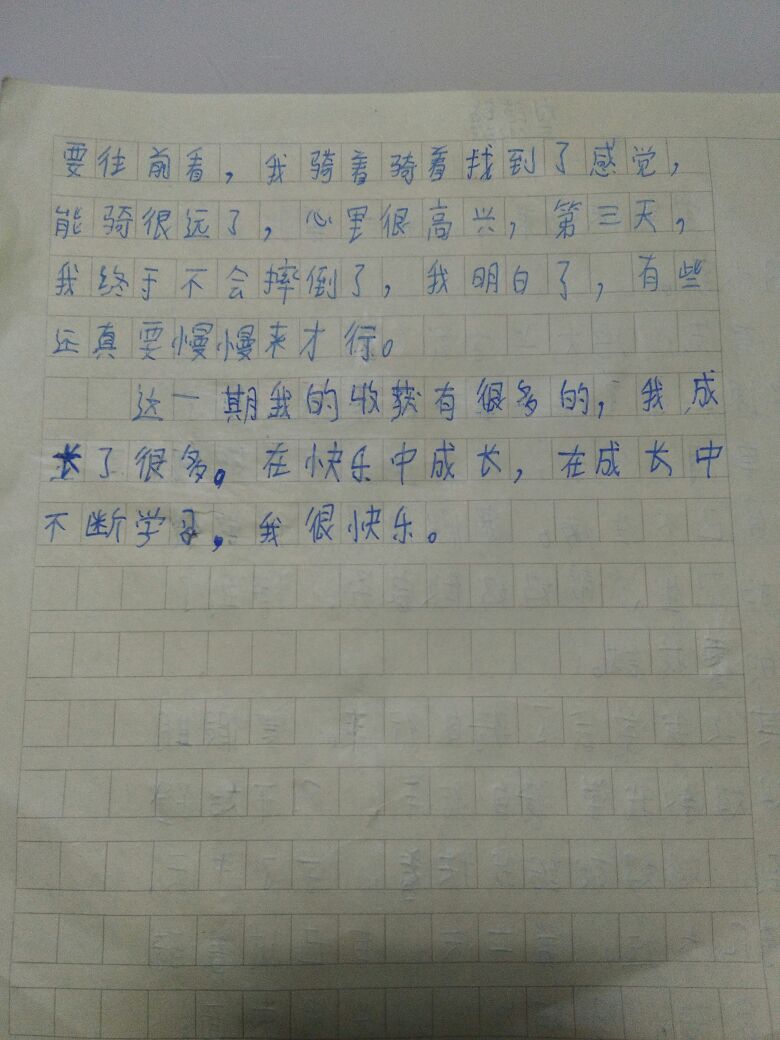 要往前看，我骑着骑着找到了感觉，
能骑很远了，心里很高兴，第三天，
我终于不会摔倒了，我明白了，有些
还真要慢慢来才行。
这一期我的收获有很多的，我成
长了很多。在快乐中成长，在成长中
不断学习，我很快乐。